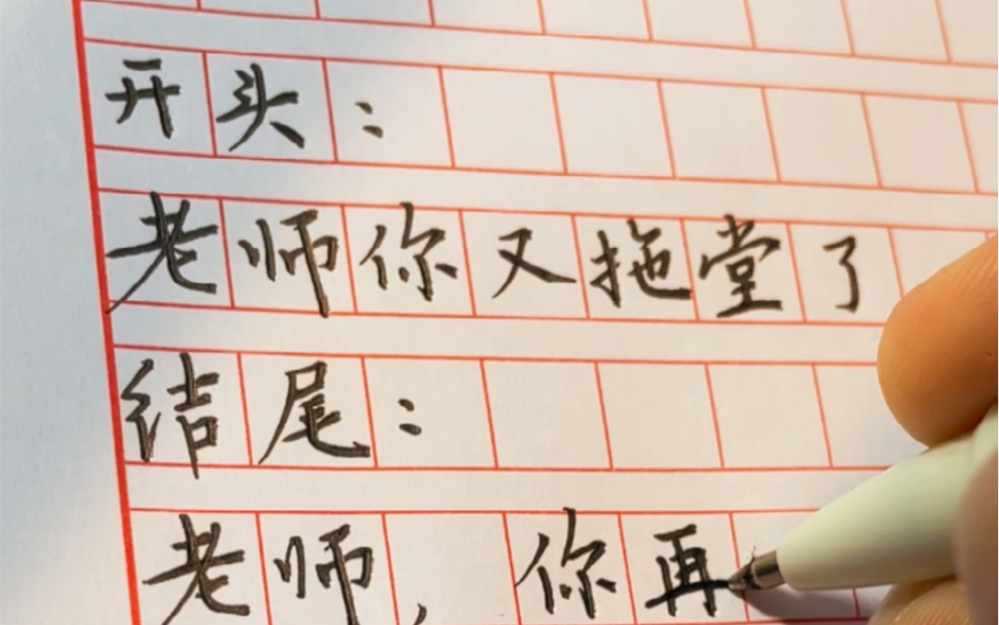 开头：
老师你又拖堂了
结尾：
老师，你再